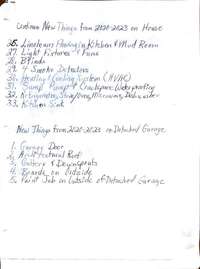 Continue New Things From 2020-2023 on House
26. Linoleum Flooring in Kitchen & Mud Room
27. Light Fixtures & Fans
28. Blinds
29. 4 Smoke Detectors
30. Heating & Cooling System (HVAC)
31. Sump Pump & Crawlspace Waterproofing
32. Refrigerator, Stove/Oven, Microwave, Dishwasher
33. Kitchen Sink
New Things From 2020-2023 on Detached Garage
1. Garage Door
2. Architectural Roof
3. Gutters & Downspouts
4. Boards on Outside
5. Paint Job on Outside of Detached Garage